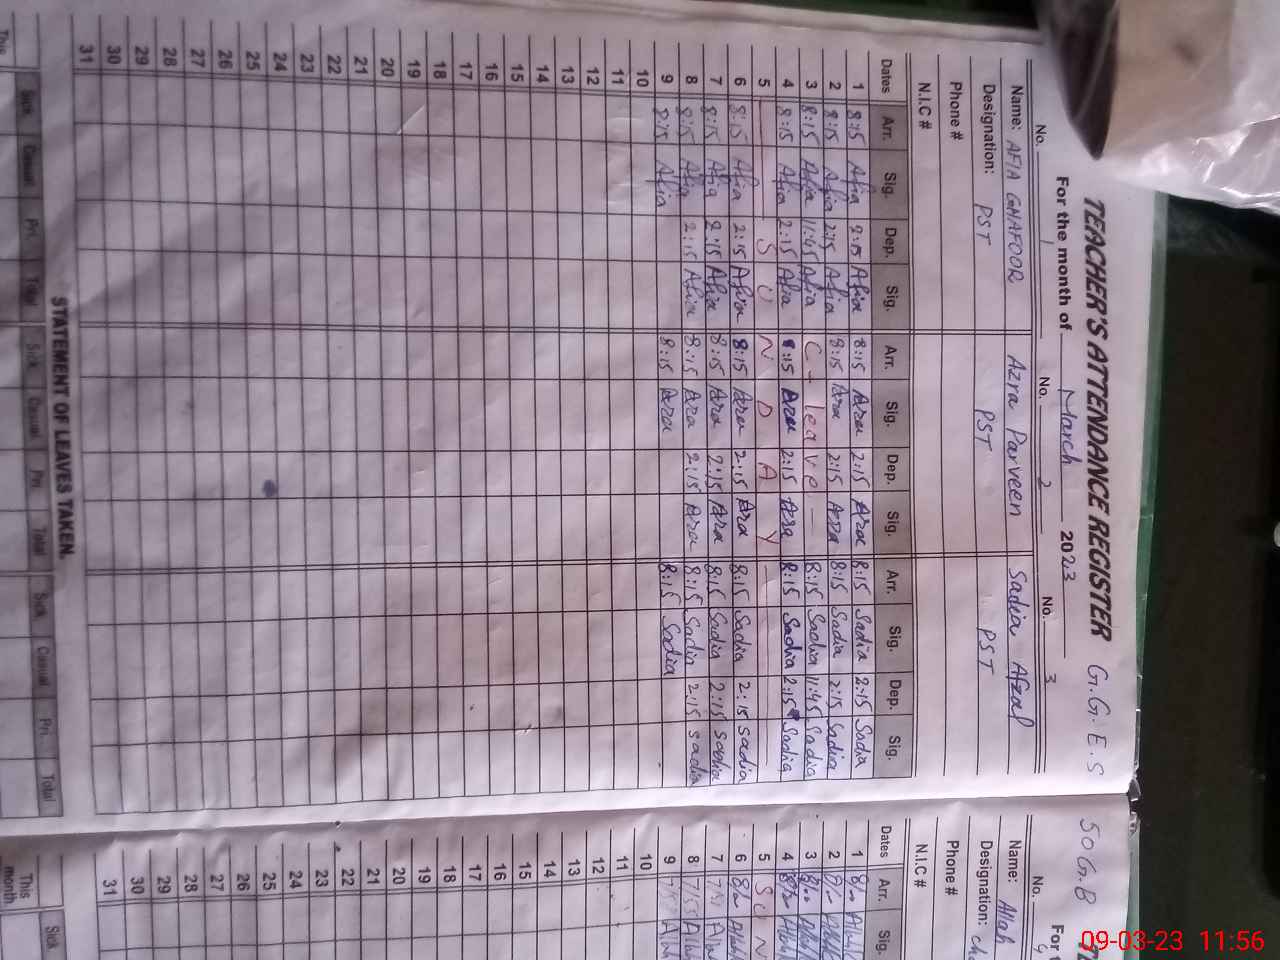 TEACHER'S ATTENDANCE REGISTER G.G.E.S 50 G.B
For the month of March 2023
No. 1 No. 2 No. 3
Name: AFIA GHAFOOR Azra Parveen Sadia Afzal
Designation: PST PST PST
Phone #
N.I.C #
Dates Arr. Sig. Dep. Sig. Arr. Sig. Dep. Sig. Arr. Sig. Dep. Sig.
1 8:15 Afia 2:15 Afia 8:15 Azra 2:15 Azra 8:15 Sadia 2:15 Sadia
2 8:15 Afia 2:15 Afia 8:15 Azra 2:15 Azra 8:15 Sadia 2:15 Sadia
3 8:15 Afia 11:45 Afia C-leave 8:15 Sadia 11:45 Sadia
4 8:15 Afia 2:15 Afia 8:15 Azra 2:15 Azra 8:15 Sadia 2:15 Sadia
5 S U N D A Y
6 8:15 Afia 2:15 Afia 8:15 Azra 2:15 Azra 8:15 Sadia 2:15 Sadia
7 8:15 Afia 2:15 Afia 8:15 Azra 2:15 Azra 8:15 Sadia 2:15 Sadia
8 8:15 Afia 2:15 Afia 8:15 Azra 2:15 Azra 8:15 Sadia 2:15 Sadia
9 8:15 Afia 8:15 Azra 8:15 Sadia
10
11
12
13
14
15
16
17
18
19
20
21
22
23
24
25
26
27
28
29
30
31
STATEMENT OF LEAVES TAKEN
Sick Casual Pri. Total Sick Casual Pri. Total Sick Casual Pri. Total
This
No. 4
Name: Allah
Designation:
Phone #
N.I.C #
Dates Arr. Sig.
1
2
3
4
5 S U N
6
7
8
9
10
11
12
13
14
15
16
17
18
19
20
21
22
23
24
25
26
27
28
29
30
31
Sick
This month
09-03-23 11:56